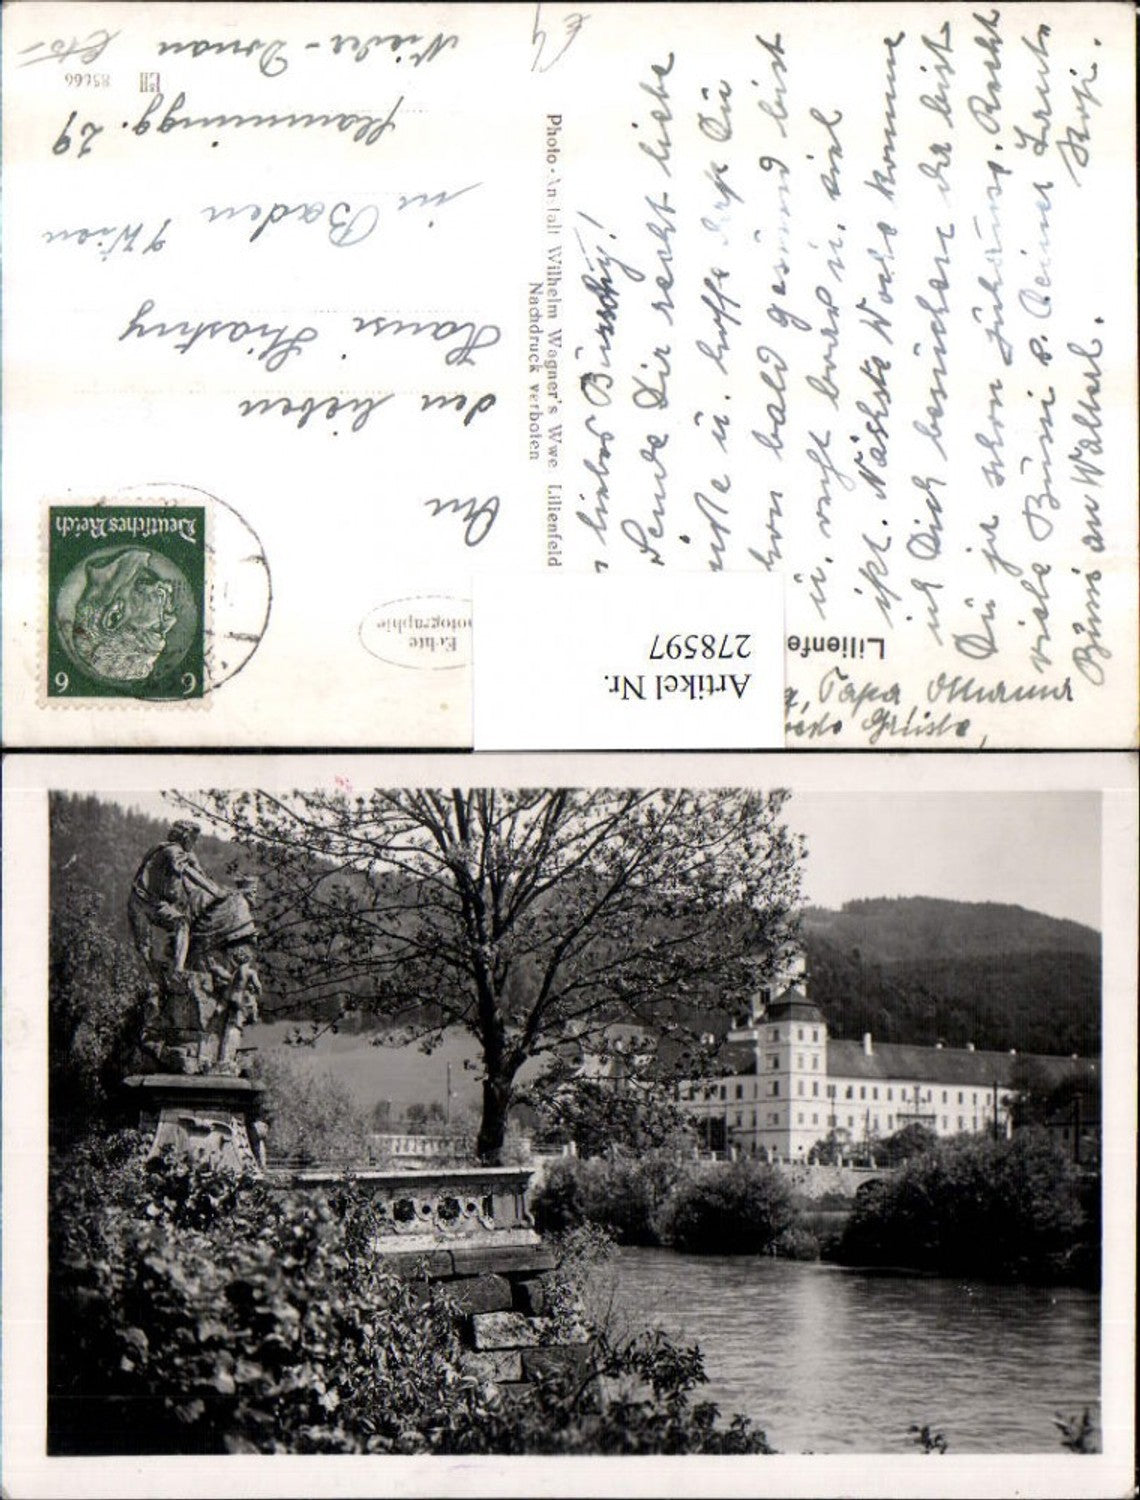 Mein lieber Burschi!
Sende Dir recht liebe
Grüße u. hoffe daß Du
schon bald gesund bist
u. recht brav u. viel
ißt. Nächste Woche komme
ich Dich besuchen da bist
Du ja schon zuhause. Recht
viele Bussi v. Deiner Tante
Bussi an Walterl.
Grüße,
Papa,
Lilienfe
Artikel Nr.
278597
Photo-Anstalt Wilhelm Wagner's Wwe. Lilienfeld
Nachdruck verboten
Echte
Photographie
Deutsches Reich
6 6
An
den lieben
Hansi
in Baden b/Wien
Flamingg. 29
Nieder-Donau
85166